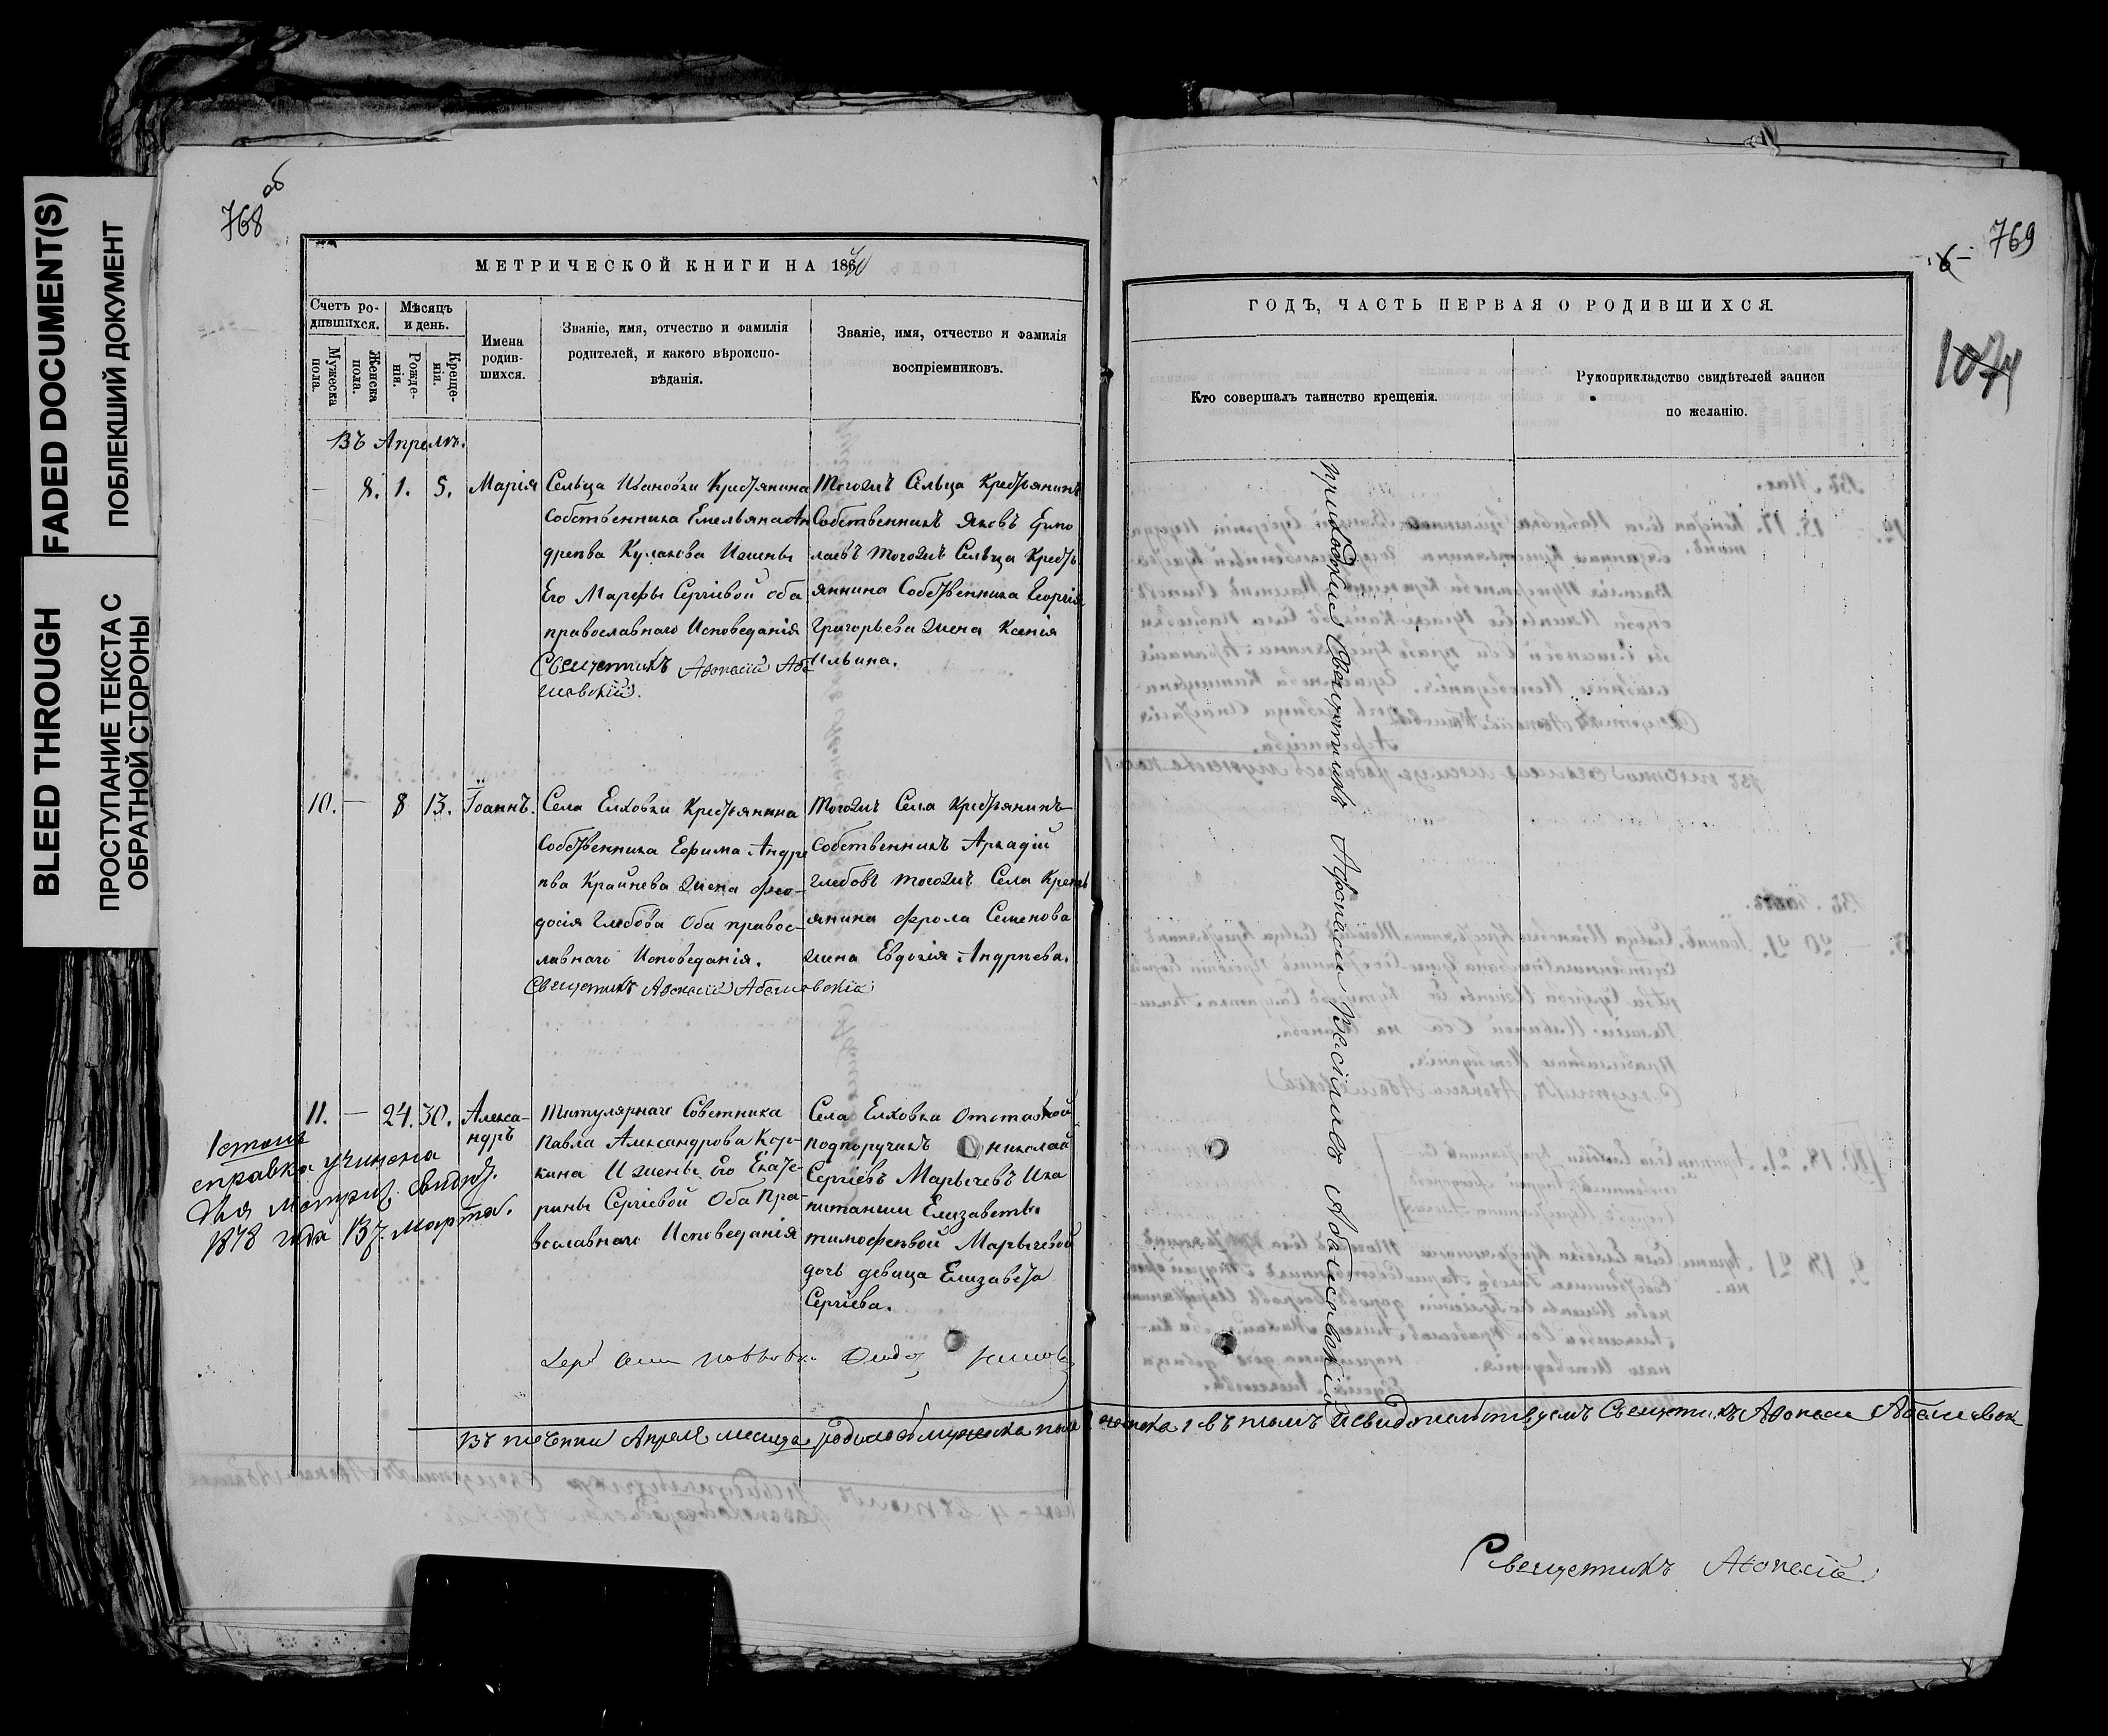 FADED DOCUMENT(S)
ПОБЛЕКШИЙ ДОКУМЕНТ
BLEED THROUGH
ПРОСТУПАНИЕ ТЕКСТА С
ОБРАТНОЙ СТОРОНЫ
768 об
МЕТРИЧЕСКОЙ КНИГИ НА 1870
Счетъ ро-
дившихся.
Мужеска
пола.
Женска
пола.
Мѣсяцъ
и день.
Рожде-
нія.
Креще-
нія.
Имена
родив-
шихся.
Званіе, имя, отчество и фамилія
родителей, и какого вѣроиспо-
вѣданія.
Званіе, имя, отчество и фамилія
воспріемниковъ.
Въ Апрелѣ.
— 8. 1. 5. Марія
Сельца Ивановки Крестьянина
Собственника Емельяна Ан
дреева Кулакова И жены
Его Марфы Сергіевой оба
православнаго Исповеданія
Священникъ Афонасій Аба
шевскій.
Тогожъ Сельца Крестьянинъ
Собственникъ Яковъ Ермо
лаевъ тогожъ Сельца Кресть
янина Собственника Георгія
Григорьева жена Ксенія
Ильина.
10. — 8 13. Іоаннъ.
Села Елховки Крестьянина
Собственника Ефима Андре
ева Крайнева жена Фео-
досія Глебова Оба правос-
лавнаго Исповеданія.
Священникъ Афонасій Абашевскій
Тогожъ Села Крестьянинъ
Собственникъ Аркадій
Глебовъ тогожъ Села Кресть
янина Фрола Семенова
жена Евдокія Андреева.
11. — 24. 30. Алекса-
ндръ
Титулярнаго Советника
Павла Александрова Кор-
кина И жены Его Екате-
рины Сергіевой Оба Пра-
вославнаго Исповеданія
Села Елховка Отставной
подпоручикъ Николай
Сергіевъ Марычевъ И ка
питанши Елизаветы
тимофеевой Марычевой
дочь девица Елизавета
Сергіева.
справка учинена
Для метрич. свидет.
1878 года 137. марта.
Въ теченіи Апреля месяца родилось мужеска пола 2 женска 1 въ томъ и свидетельствуемъ Священникъ Афонасій Абашевск
769
6
1074
ГОДЪ, ЧАСТЬ ПЕРВАЯ О РОДИВШИХСЯ.
Кто совершалъ таинство крещенія.
Рукоприкладство свидѣтелей записи
по желанію.
приходскій Священникъ Афонасій Васильевъ Абашевскій
Священникъ Афонасій